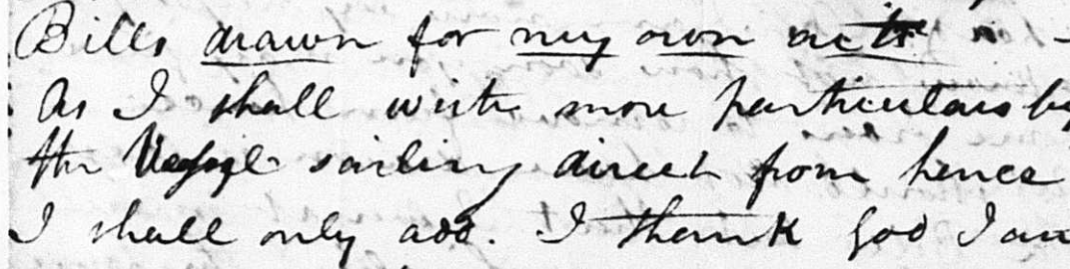 Bills drawn for my own acct
As I shall write more particulars by
the Vessel sailing direct from hence
I shall only add. I thank God I am